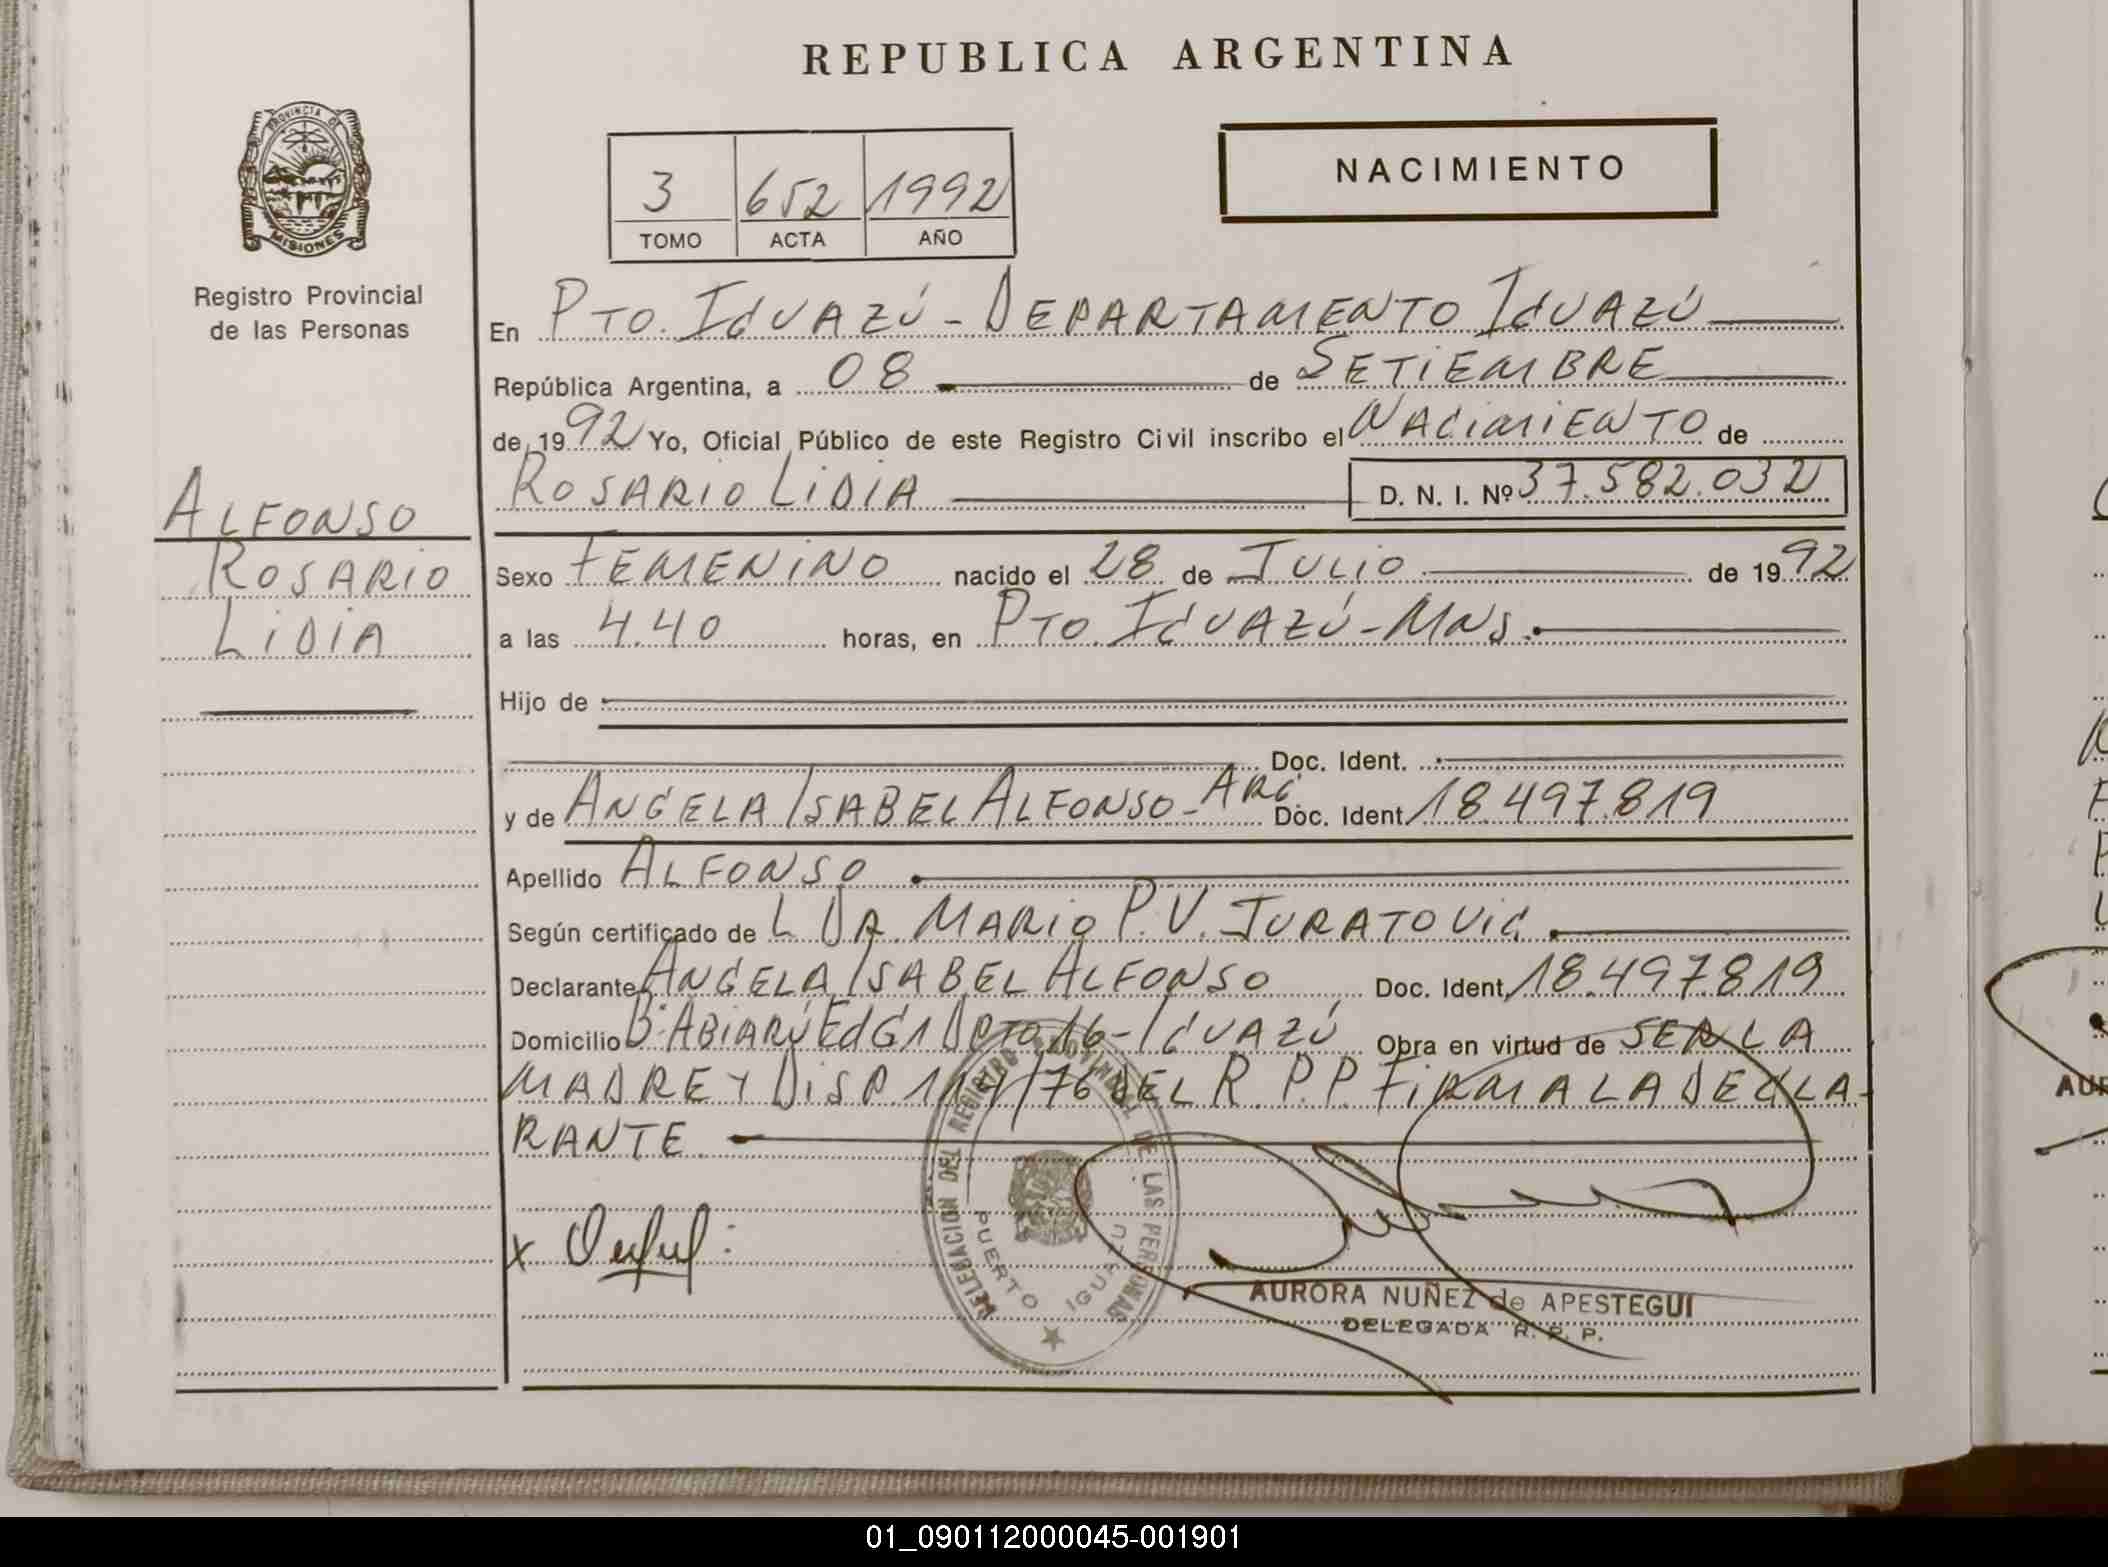 REPUBLICA ARGENTINA
PROVINCIA DE
MISIONES
Registro Provincial
de las Personas
3 652 1992
TOMO ACTA AÑO
NACIMIENTO
En PTO. IGUAZÚ - DEPARTAMENTO IGUAZÚ
República Argentina, a 08 de SETIEMBRE
de 1992 Yo, Oficial Público de este Registro Civil inscribo el NACIMIENTO de
ROSARIO LIDIA D. N. I. Nº 37.582.032
ALFONSO
ROSARIO
LIDIA
Sexo FEMENINO nacido el 28 de JULIO de 1992
a las 4.40 horas, en PTO. IGUAZÚ - MNS.
Hijo de
Doc. Ident.
y de ANGELA ISABEL ALFONSO - ARG. Doc. Ident. 18.497.819
Apellido ALFONSO
Según certificado de L DR. MARIO P. V. JURATOVIC
Declarante ANGELA ISABEL ALFONSO Doc. Ident. 18.497.819
Domicilio Bº ABIARÚ Ed G1 DPTO 16 - IGUAZÚ Obra en virtud de SER LA
MADRE Y DISP. /76 DEL R. P. P. FIRMA LA DECLA-
RANTE
x
DELEGACION DEL REGISTRO PROVINCIAL DE LAS PERSONAS
PUERTO IGUAZU
AURORA NUÑEZ de APESTEGUI
DELEGADA R. P. P.
AUR
01_090112000045-001901